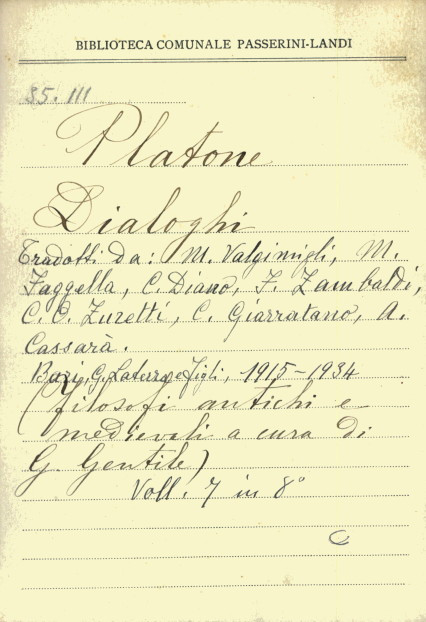 BIBLIOTECA COMUNALE PASSERINI-LANDI
85. III
Platone
Dialoghi
Tradotti da: M. Valgimigli, M.
Faggella, C. Diano, F. Zambaldi,
C. O. Zuretti, C. Giarratano, A.
Cassarà.
Bari, G. Laterza e Figli, 1915-1934
(filosofi antichi e
medievali a cura di
G. Gentile)
Voll. 7 in 8°
C